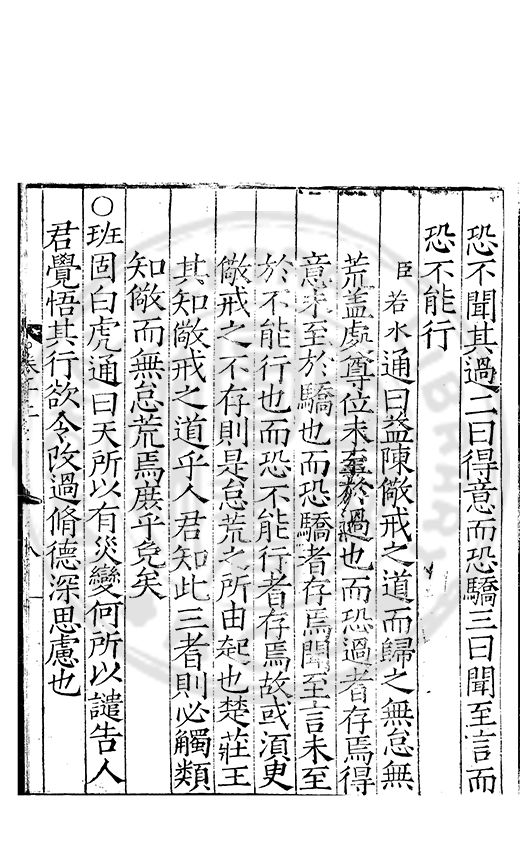 恐不聞其過二曰得意而恐驕三曰聞至言而
恐不能行
臣若水通曰益陳儆戒之道而歸之無怠無
荒盖處尊位未至於過也而恐過者存焉得
意未至於驕也而恐驕者存焉聞至言未至
於不能行也而恐不能行者存焉故或湏臾
儆戒之不存則是怠荒之所由起也楚莊王
其知儆戒之道乎人君知此三者則必觸類
知儆而無怠荒焉庶乎免矣
○班固白虎通曰天所以有災變何所以譴告人
君覺悟其行欲令改過脩德深思慮也